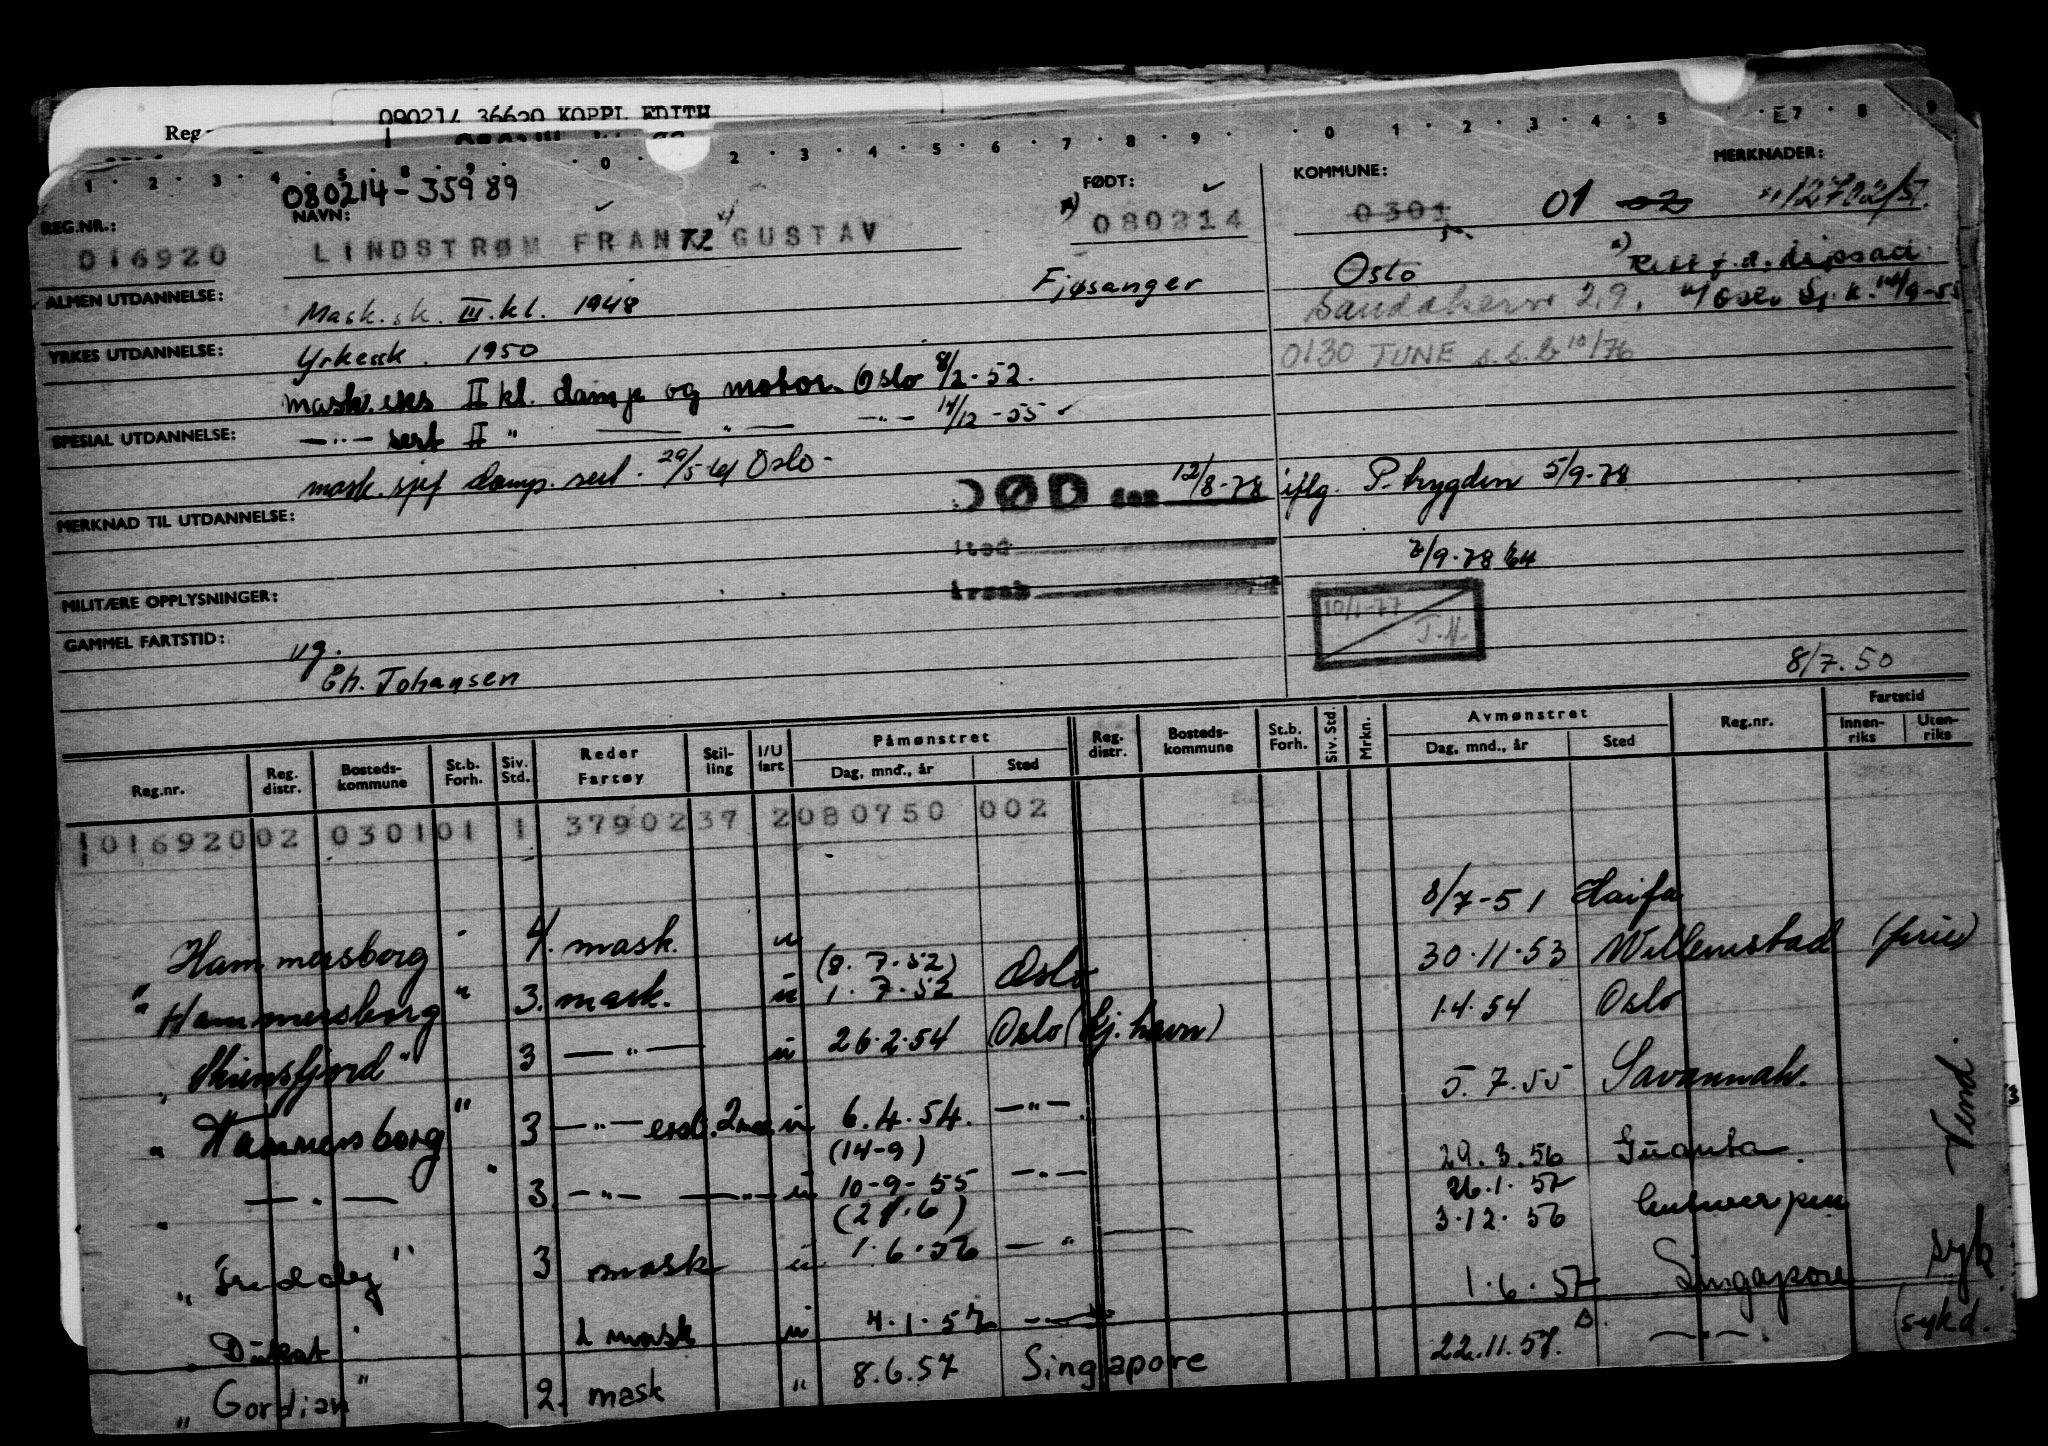 090214 36620 KOPPL EDITH
Reg
1 2 3 4 5 8 9 0 2 3 4 5 6 7 8 9 0 1 2 3 4 5 E7 8 9
080214-35989
REG.NR.: NAVN: FØDT: KOMMUNE: MERKNADER:
016920 LINDSTRØM FRANTZ GUSTAV 080214 0301 01 02 12702/57
ALMEN UTDANNELSE: Mask.sk. III.kl. 1948 Fjøsanger Oslo
Sandakervn 29.
YRKES UTDANNELSE: Yrkessk. 1950 0130 TUNE s.s.b 10/76
mask.eks II kl. damp og motor. Oslo 8/2-52.
SPESIAL UTDANNELSE: —"— sert II " — " — —"— 14/12-55
mask. sjef damp. sert. 29/5-61 Oslo-
DØD den 12/8-78 iflg. P.trygden 5/9-78
MERKNAD TIL UTDANNELSE:
sted
7/9-78
MILITÆRE OPPLYSNINGER:
årsak
10/1-77
J.H.
GAMMEL FARTSTID: ug.
Eh. Johansen
8/7.50
Reg.nr. Reg. distr. Bosteds- kommune St.b. Forh. Siv. Std. Reder Fartøy Stil- ling I/U fart Påmønstret Dag, mnd., år Sted Reg. distr. Bosteds- kommune St.b. Forh. Siv. Std. Mrkn. Avmønstret Dag, mnd., år Sted Reg.nr. Fartstid Innen- riks Uten- riks
1 016920 02 0301 01 1 37902 37 2 080750 002
Hammersborg 4. mask. u 8/7-51 Haifa
(8.7.52)
" Hammersborg " 3. mask. u 1.7.52 Oslo 30.11.53 Willemstad
" Skiensfjord " 3 —"— u 26.2.54 Oslo (Kj.havn) 1.4.54 Oslo
" Hammersborg " 3 —"— u 6.4.54. —"— 5.7.55 Savannah.
(14-9)
" —"— " 3 —"— —"— u 10-9-55 —"— 29.3.56 Guanta
(21.6) 26.1.57
3 mask u 1.6.56 —"— 3.12.56 Antwerpen
" Dukat 2 mask u 4.1.57 —"— 1.6.57 Singapore syk
" Gordian " 2. mask " 8.6.57 Singapore 22.11.57. —"—. (sykd.